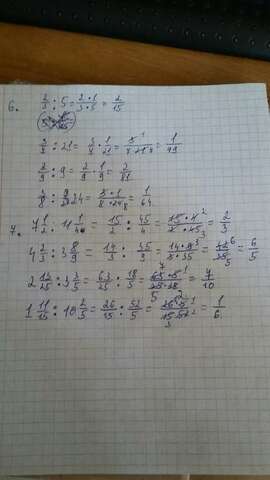 6. 2/3 : 5 = 2·1/3·5 = 2/15
3/7 : 21 = 3/7 · 1/21 = = 1/49
2/9 : 9 = 2/9 · 1/9 = 2/81
3/8 : 24 = = 1/64
7. 7 1/2 : 11 1/4 = 15/2 : 45/4 = 15·4/2·45 = 2/3
4 2/3 : 3 8/9 = 14/3 : 35/9 = 14·9/3·35 = = 6/5
2 13/25 : 3 3/5 = 63/25 : 18/5 = 63·5/25·18 = 7/10
1 11/15 : 10 2/5 = 26/15 : 52/5 = 26·5/15·52 = 1/6